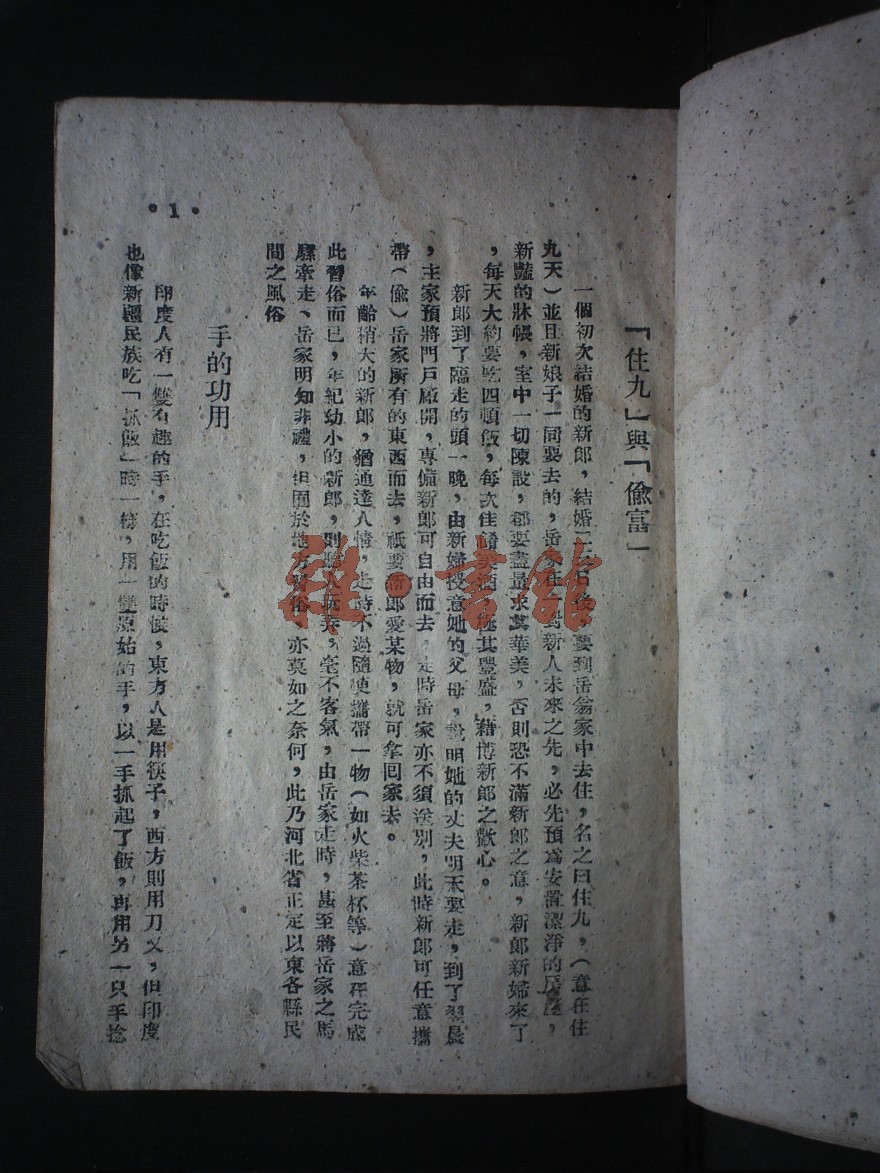 「住九」與「偸富」
一個初次結婚的新郎，結婚二三日後，要到岳翁家中去住，名之曰住九，（意在住
九天）並且新娘子一同要去的，岳家在對新人未來之先，必先預爲安置潔淨的房屋，
新豔的牀帳，室中一切陳設，都要盡量求其華美，否則恐不滿新郎之意，新郎新婦來了
，每天大約要吃四頓飯，每次佳餚美酒，極其豐盛，藉博新郎之歡心。
新郎到了臨走的頭一晚，由新婦授意她的父母，說明她的丈夫明天要走，到了翌晨
，主家預將門戶廠開，專備新郎可自由而去，走時岳家亦不須送別，此時新郎可任意攜
帶（偸）岳家所有的東西而去，祇要新郎愛某物，就可拿回家去。
年齡稍大的新郎，猶通達人情，走時不過隨便攜帶一物（如火柴茶杯等）意在完成
此習俗而已，年紀幼小的新郎，則聽人玩弄，毫不客氣，由岳家走時，甚至將岳家之馬
騾牽走、岳家明知非禮，但囿於地方習俗，亦莫如之奈何，此乃河北省正定以東各縣民
間之風俗
手的功用
印度人有一雙有趣的手，在吃飯的時候，東方人是用筷子，西方則用刀叉，但印度
也像新疆民族吃「抓飯」時一樣，用一雙原始的手，以一手抓起了飯，再用另一只手捻
•1•
雜•書館